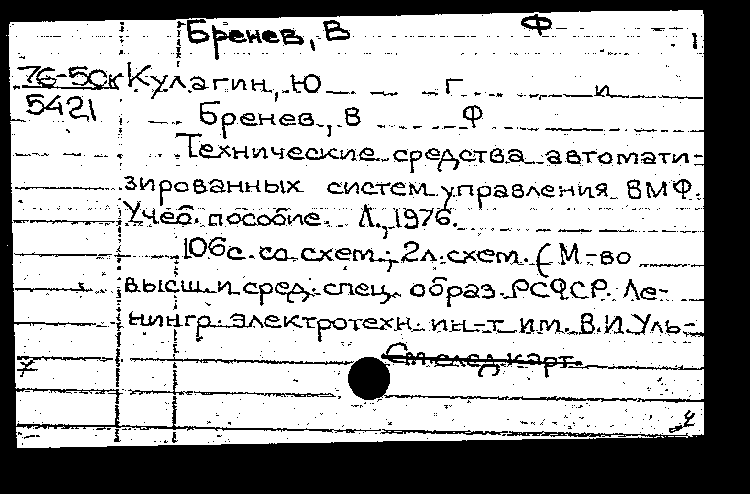 Бренев, В Ф 1
76-50к Кулагин, Ю Г и
5421 Бренев, В Ф
Технические средства автомати-
зированных систем управления ВМФ.
Учеб. пособие. Л., 1976.
106с. со схем.; 2л. схем. (М-во
высш. и сред. спец. образ. РСФСР. Ле-
нингр. электротехн. ин-т им. В.И. Уль-
См след карт.